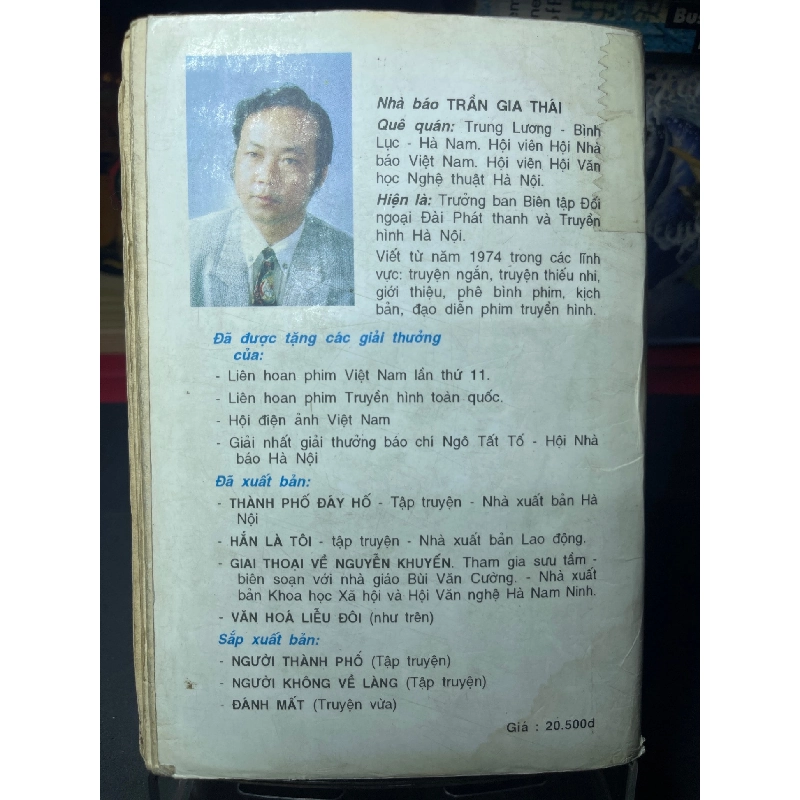 Nhà báo TRẦN GIA THÁI
Quê quán: Trung Lương - Bình
Lục - Hà Nam. Hội viên Hội Nhà
báo Việt Nam. Hội viên Hội Văn
học Nghệ thuật Hà Nội.
Hiện là: Trưởng ban Biên tập Đối
ngoại Đài Phát thanh và Truyền
hình Hà Nội.
Viết từ năm 1974 trong các lĩnh
vực: truyện ngắn, truyện thiếu nhi,
giới thiệu, phê bình phim, kịch
bản, đạo diễn phim truyền hình.
Đã được tặng các giải thưởng
của:
- Liên hoan phim Việt Nam lần thứ 11.
- Liên hoan phim Truyền hình toàn quốc.
- Hội điện ảnh Việt Nam
- Giải nhất giải thưởng báo chí Ngô Tất Tố - Hội Nhà
báo Hà Nội
Đã xuất bản:
- THÀNH PHỐ ĐÁY HỒ - Tập truyện - Nhà xuất bản Hà
Nội
- HẮN LÀ TÔI - tập truyện - Nhà xuất bản Lao động.
- GIAI THOẠI VỀ NGUYỄN KHUYẾN. Tham gia sưu tầm -
biên soạn với nhà giáo Bùi Văn Cường. - Nhà xuất
bản Khoa học Xã hội và Hội Văn nghệ Hà Nam Ninh.
- VĂN HOÁ LIỄU ĐÔI (như trên)
Sắp xuất bản:
- NGƯỜI THÀNH PHỐ (Tập truyện)
- NGƯỜI KHÔNG VỀ LÀNG (Tập truyện)
- ĐÀNH MẤT (Truyện vừa)
Giá : 20.500đ